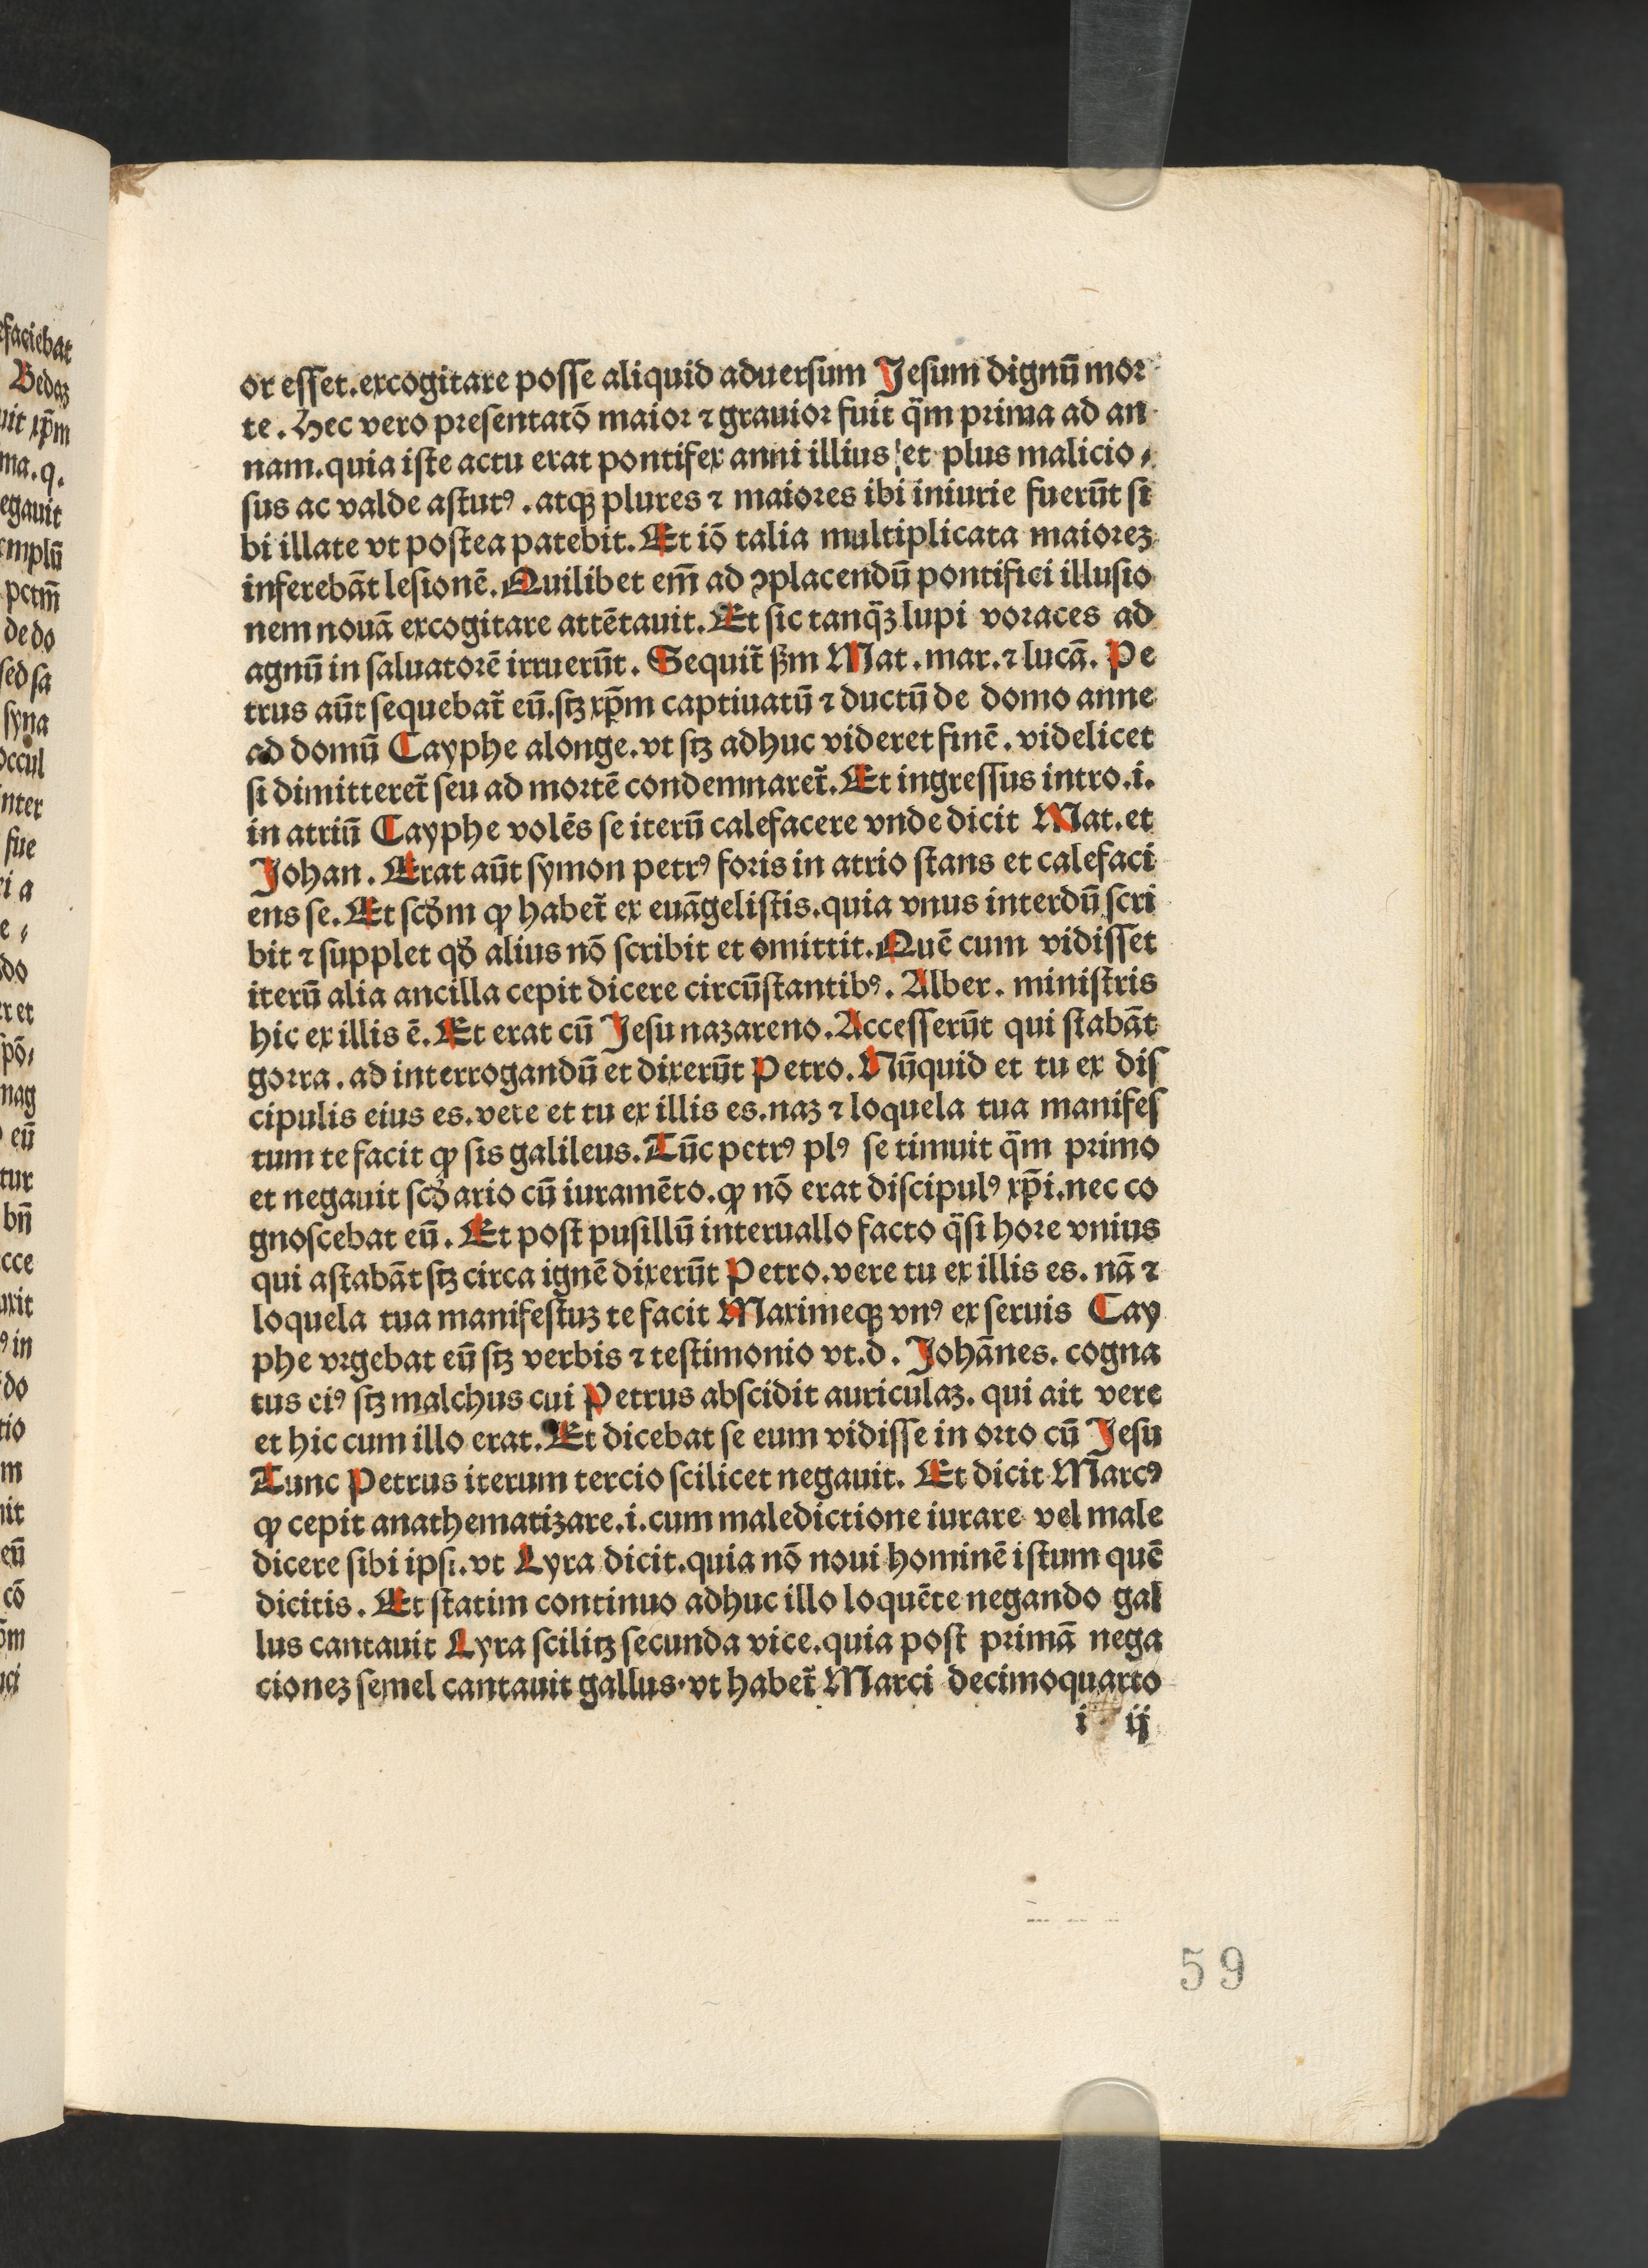 or eſſet.excogitare poſſe aliquid aduerſum Jeſum dignū mor
te. Hec vero preſentatō maior ⁊ grauior fuit q̈m prima ad an
nam.quia iſte actu erat pontifex anni illius et plus malicio⸗
sus ac valde aſtutꝰ. atqꝫ plures ⁊ maiores ibi iniurie fuerūt ſi
bi illate vt poſtea patebit. Et iō talia multiplicata maiorez
inferebāt leſionē. Quilibet em̄ ad ꝯplacendū pontifici illuſio
nem nouā excogitare attētauit. Et ſic tanq̈ꝫ lupi voraces ad
agnū in ſaluatorē irruerūt. Sequit̄ ẜm Mat. mar. ⁊ lucā. Pe
trus aūt ſequebat̄ eū.ſtꝫ xp̄m captiuatū ⁊ ductū de domo anne
ad domū Cayphe alonge.vt ſtꝫ adhuc videret finē. videlicet
ſi dimitteret̄ ſeu ad mortē condemnaret̄. Et ingreſſus intro.i.
in atriū Cayphe volēs ſe iterū calefacere vnde dicit Mat. et
Johan. Erat aūt ſymon petrꝰ foris in atrio ſtans et calefaci
ens ſe. Et ſcd̄m ꝙ habet̄ ex euāgeliſtis.quia vnus interdū ſcri
bit ⁊ ſupplet qd̄ alius nō ſcribit et omittit. Quē cum vidiſſet
iterū alia ancilla cepit dicere circūſtantibꝰ. Alber. miniſtris
hic ex illis ē. Et erat cū Jeſu nazareno. Acceſſerūt qui ſtabāt
gorra. ad interrogandū et dixerūt Petro. Nūquid et tu ex diſ
cipulis eius es.vere et tu ex illis es.naꝫ ⁊ loquela tua manifeſ
tum te facit ꝙ ſis galileus. Tūc petrꝰ plꝰ ſe timuit q̈m primo
et negauit ſcd̄ario cū iuramēto.ꝙ nō erat diſcipulꝰ xp̄i.nec co
gnoſcebat eū. Et poſt puſillū interuallo facto q̈ſi hore vnius
qui aſtabāt ſtꝫ circa ignē dixerūt Petro.vere tu ex illis es. nā ⁊
loquela tua manifeſtuꝫ te facit Maximeqꝫ vnꝰ ex ſeruis Cay
phe vrgebat eū ſtꝫ verbis ⁊ teſtimonio vt.d. Johānes. cogna
tus eiꝰ ſtꝫ malchus cui Petrus abſcidit auriculaꝫ. qui ait vere
et hic cum illo erat. Et dicebat ſe eum vidiſſe in orto cū Jeſu
Tunc Petrus iterum tercio ſcilicet negauit. Et dicit Marcꝰ
ꝙ cepit anathematizare.i.cum maledictione iurare vel male
dicere ſibi ipſi.vt Lyra dicit.quia nō noui hominē iſtum quē
dicitis. Et ſtatim continuo adhuc illo loquēte negando gal
lus cantauit Lyra ſcilitꝫ ſecunda vice.quia poſt primā nega
cionez ſemel cantauit gallus·vt habet̄ Marci decimoquarto
i ij
59